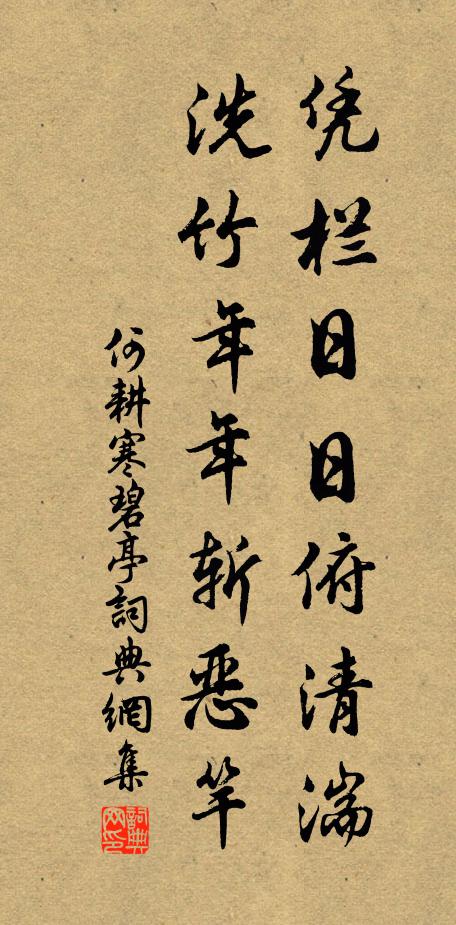 凭栏日日俯清湍
洗竹年年斩恶竿
何耕寒碧亭詞典網集
詞典網印